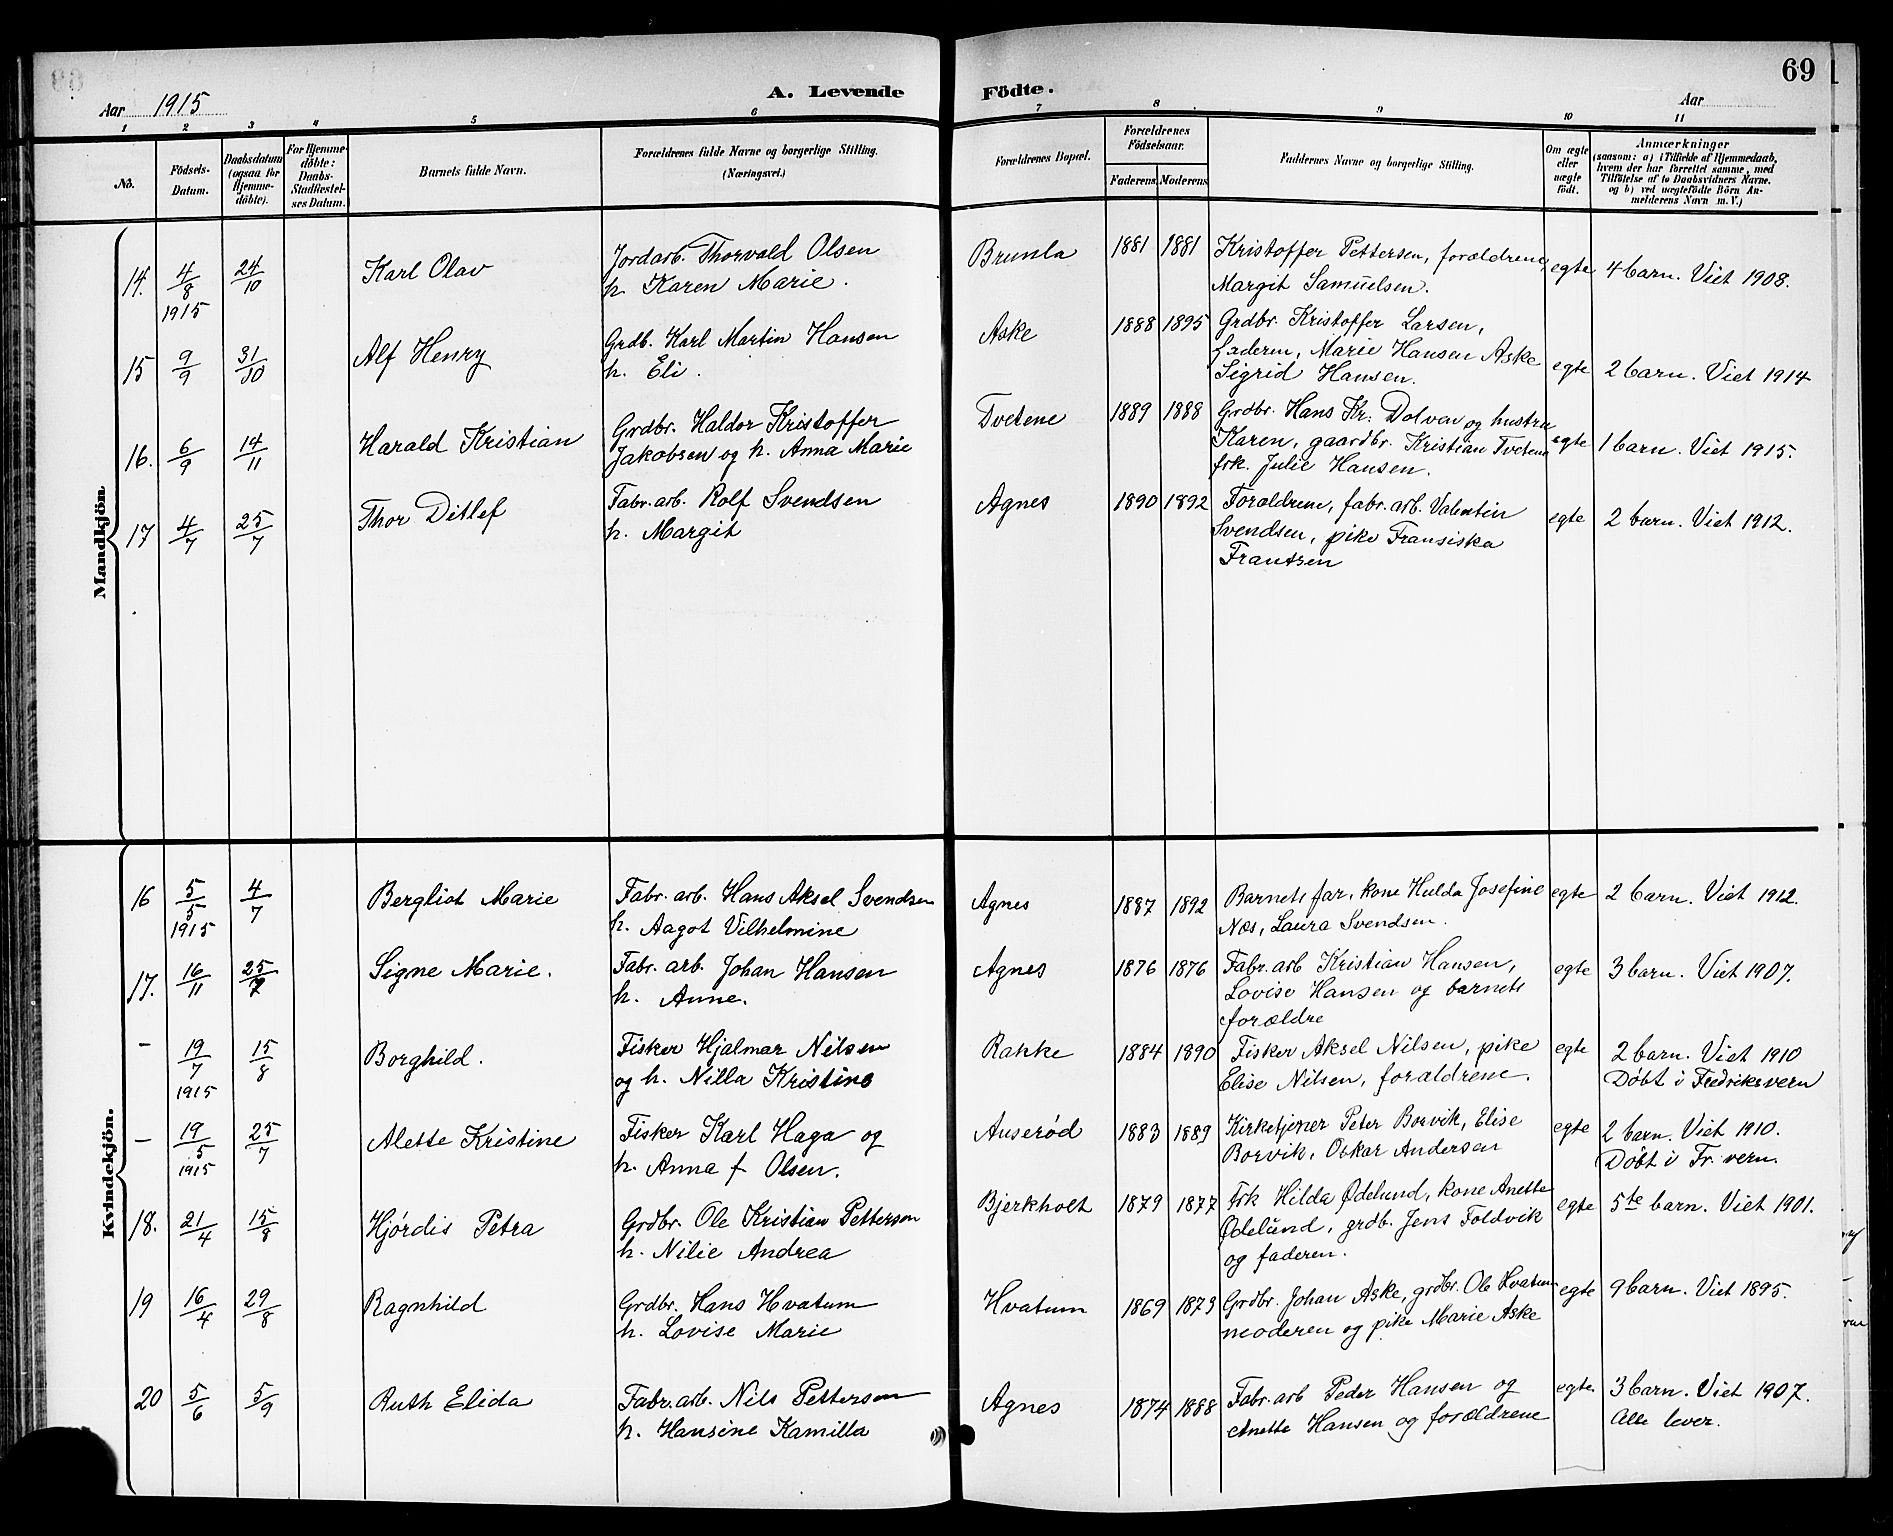 69
Aar 1915
A. Levende
Födte.
Aar
1 2 3 4 5 6 7 8 9 10 11
No.
Födsels-
Datum.
Daabsdatum
(ogsaa for
Hjemme-
döbte).
For Hjemme-
döbte:
Daabs-
Stadfæstel-
ses Datum.
Barnets fulde Navn.
Forældrenes fulde Navne og borgerlige Stilling.
(Næringsvei.)
Forældrenes Bopæl.
Forældrenes
Födselsaar.
Faderens. Moderens.
Faddernes Navne og borgerlige Stilling.
Om ægte
eller
uægte
födt.
Anmærkninger
(saasom: a) i Tilfælde af Hjemmedaab,
hvem der har forrettet samme, med
Tilföielse af to Daabsvidners Navne,
og b) ved uægtefödte Börn An-
melderens Navn m. V.)
Mandkjön
14. 4/8 1915 24/10 Karl Olav
Jordarb. Thorvald Olsen
h. Karen Marie.
Brunla 1881 1881
Kristoffer Pettersen, forældrene,
Margit Samuelsen.
egte 4 barn. Viet 1908.
15 9/9 31/10 Alf Henry
Grdb. Karl Martin Hansen
h. Eli.
Aske 1888 1895
Grdbr. Kristoffer Larsen,
faderen, Marie Hansen Aske
Sigrid Hansen.
egte 2 barn. Viet 1914
16. 6/9 14/11 Harald Kristian
Grdbr. Haldor Kristoffer
Jakobsen og h. Anna Marie
Tvetene 1889 1888
Grdbr. Hans Kr. Dolven og hustru
Karen, gaardbr. Kristian Tvetene
frk. Julie Hansen.
egte 1 barn. Viet 1915.
17 4/7 25/7 Thor Ditlef
Fabr. arb. Rolf Svendsen
h. Margit
Agnes 1890 1892
Forældrene, fabr. arb. Valentin
Svendsen, pike Fransiska
Frantsen
egte 2 barn. Viet 1912.
Kvindekjön.
16 5/5 1915 4/7 Bergliot Marie
Fabr. arb. Hans Aksel Svendsen
h. Aagot Vilhelmine
Agnes 1887 1892
Barnets far, kone Hulda Josefine
Næs, Laura Svendsen.
egte 2 barn. Viet 1912.
17. 16/11 25/7 Signe Marie.
Fabr. arb. Johan Hansen
h. Anne.
Agnes 1876 1876
Fabr. arb Kristian Hansen,
Lovise Hansen og barnets
forældre
egte 3 barn. Viet 1907.
- 19/7 1915 15/8 Borghild.
Fisker Hjalmar Nilsen
og h. Nilla Kristine
Rakke 1884 1890
Fisker Aksel Nilsen, pike
Elise Nilsen, forældrene.
egte 2 barn. Viet 1910
Døbt i Fredriksvern
- 19/5 1915 25/7 Alette Kristine
Fisker Karl Haga og
h. Anna f Olsen.
Auserød 1883 1889
Kirketjener Peter Borvik, Elise
Borvik, Oskar Andersen
egte 2 barn. Viet 1910.
Døbt i Fr. vern.
18. 21/4 15/8 Hjørdis Petra
Grdbr. Ole Kristian Petterson
h. Nilie Andrea
Bjerkholt 1879 1877
Frk Hilda Ødelund, kone Anette
Ødelund, grdb. Jens Foldvik
og faderen.
egte 5te barn. Viet 1901.
19 16/4 29/8 Ragnhild
Grdbr. Hans Hvatum
h. Lovise Marie
Hvatum 1869 1873
Grdbr. Johan Aske, grdbr. Ole Hvatum
moderen og pike Marie Aske
egte 9 barn. Viet 1895.
20 5/6 5/9 Ruth Elida
Fabr. arb. Nils Petterson
h. Hansine Kamilla
Agnes 1874 1888
Fabr. arb Peder Hansen og
Anette Hansen og forældrene
egte. 3 barn. Viet 1907.
Alle lever.